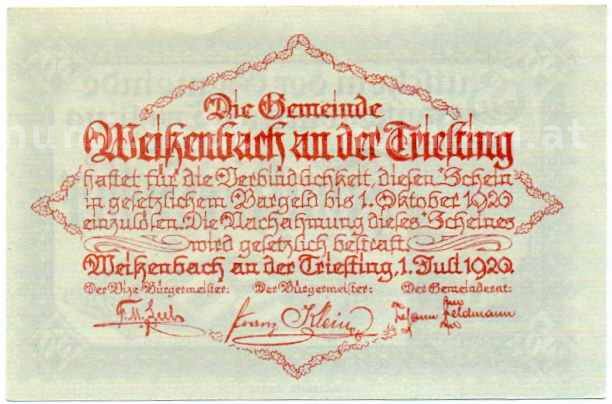 Die Gemeinde
Weißenbach an der Triesting
haftet für die Verbindlichkeit, diesen Schein
in gesetzlichem Bargeld bis 1. Oktober 1920
einzulösen. Die Nachahmung dieses Scheines
wird gesetzlich bestraft.
Weißenbach an der Triesting, 1. Juli 1920.
Der Vize-Bürgermeister: Der Bürgermeister: Der Gemeinderat:
Franz Klein Johann Feldmann